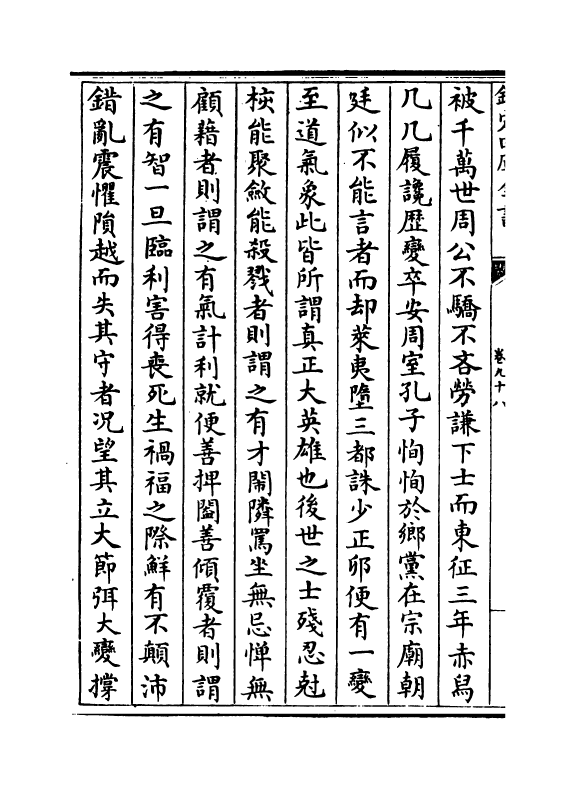 被千萬世周公不驕不吝勞謙下士而東征三年赤舄
几几履讒歴變卒安周室孔子恂恂於鄉黨在宗廟朝
廷似不能言者而却萊夷墮三都誅少正卯便有一變
至道氣象此皆所謂真正大英雄也後世之士殘忍尅
核能聚斂能殺戮者則謂之有才鬧隣罵坐無忌憚無
顧藉者則謂之有氣計利就便善捭闔善傾覆者則謂
之有智一旦臨利害得喪死生禍福之際鮮有不顛沛
錯亂震懼隕越而失其守者况望其立大節弭大變撐
卷九十八